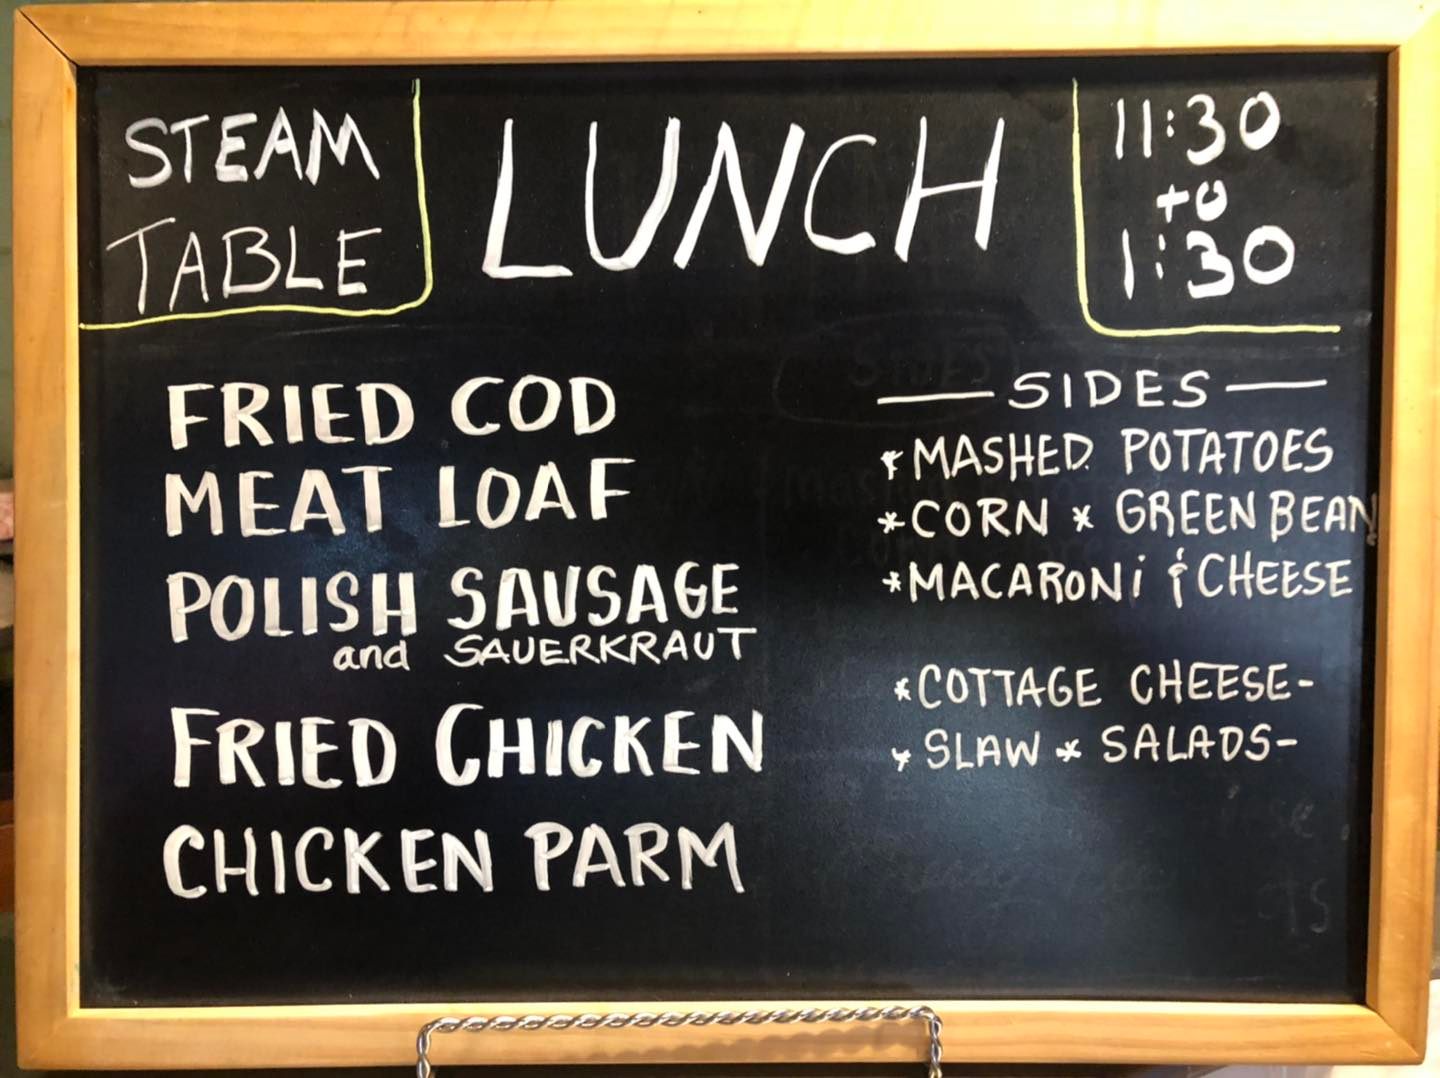 STEAM
TABLE
LUNCH
11:30
to
1:30
FRIED COD
MEAT LOAF
POLISH SAUSAGE
and SAUERKRAUT
FRIED CHICKEN
CHICKEN PARM
— SIDES —
* MASHED POTATOES
* CORN * GREEN BEAN
* MACARONi & CHEESE
* COTTAGE CHEESE-
* SLAW * SALADS-